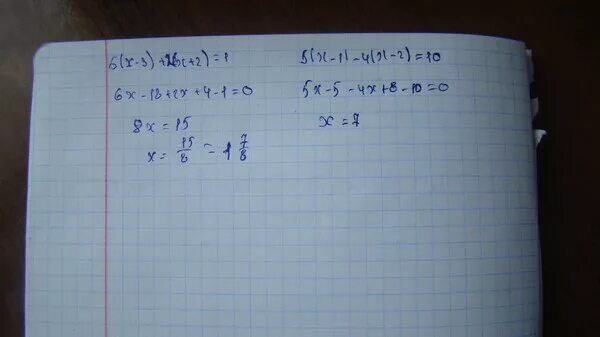 6(x-3)+2(x+2)=1
6x-18+2x+4-1=0
8x=15
x=15/8=1 7/8
5(x-1)-4(x-2)=10
5x-5-4x+8-10=0
x=7